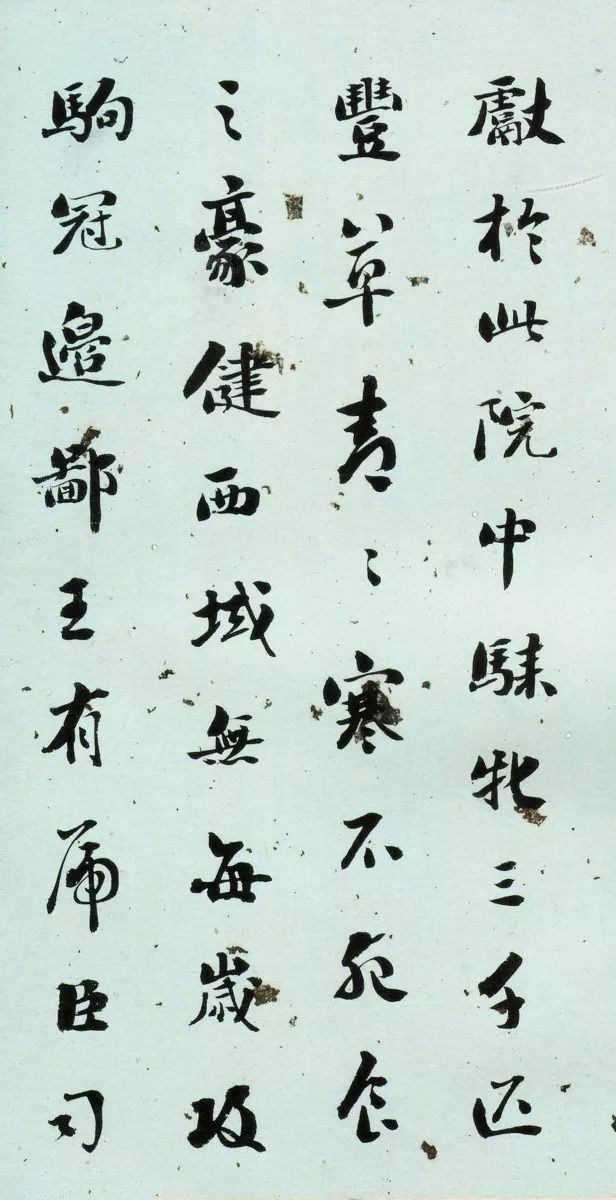 獻於此院中騋牝三千匹
豐草青〻寒不死食
之豪健西域無每歲攻
駒冠邊鄙王有虎臣司